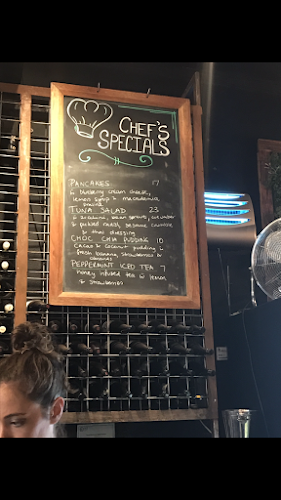 CHEF'S
SPECIALS
PANCAKES 17
blueberry cream cheese,
lemon syrup & macadamia
TUNA SALAD 23
bean sprouts, cucumber
& pickled sesame
& dressing
CHOC CHIA PUDDING 10
cacao & coconut pudding
fresh banana, strawberries &
PEPPERMINT ICED TEA 7
honey infused tea lemon
& strawberries